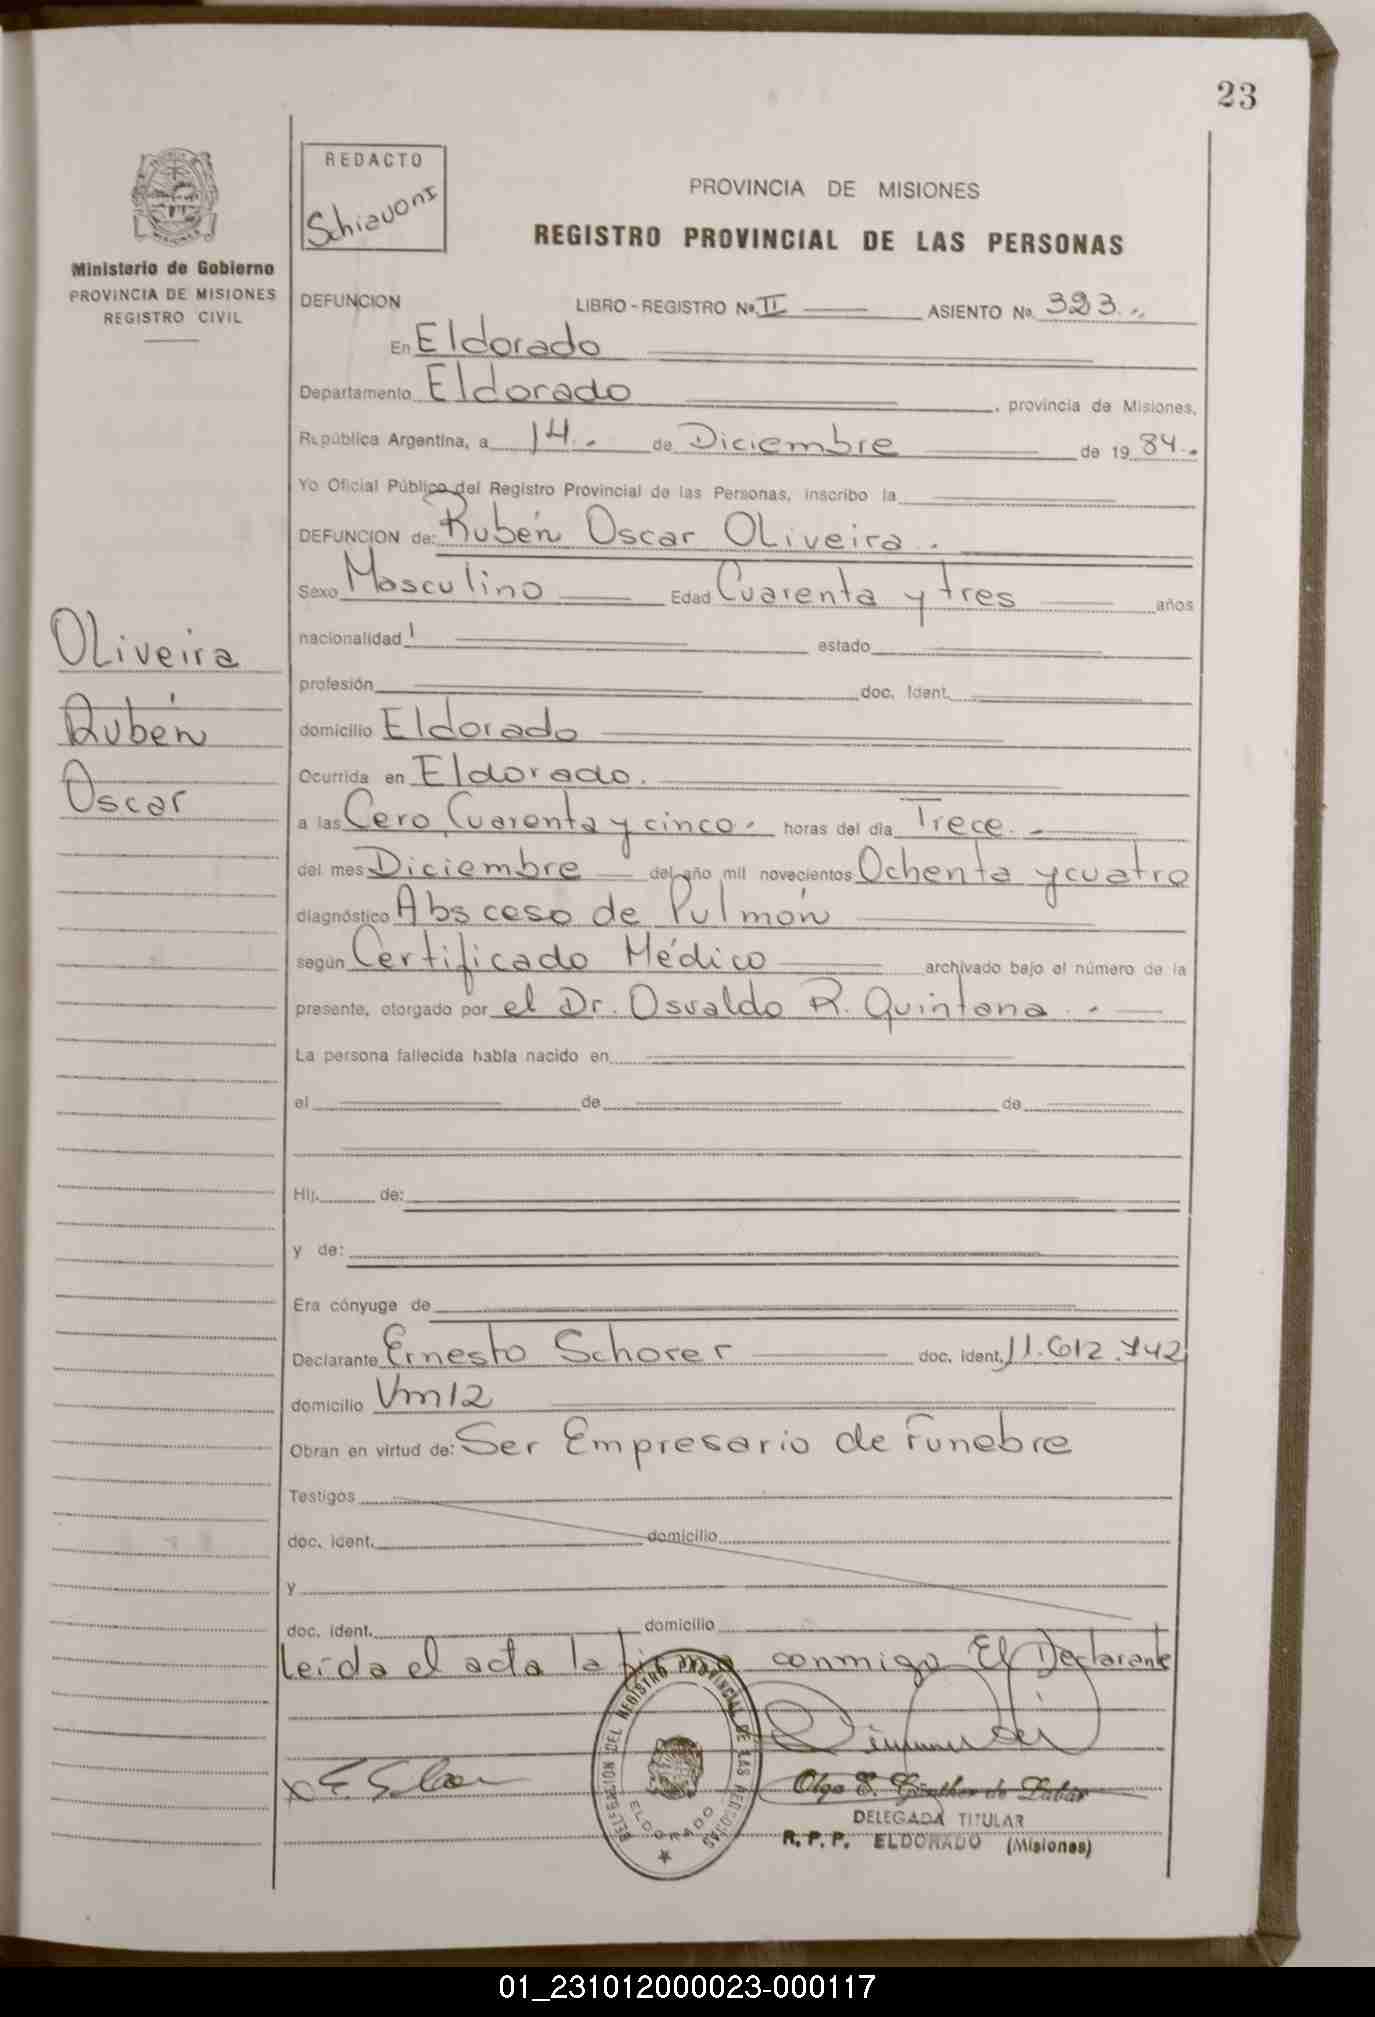 23
REDACTO
Schiavoni
PROVINCIA DE MISIONES
REGISTRO PROVINCIAL DE LAS PERSONAS
MISIONES
Ministerio de Gobierno
PROVINCIA DE MISIONES
REGISTRO CIVIL
DEFUNCION LIBRO - REGISTRO Nº II ASIENTO Nº 323.
En Eldorado
Departamento Eldorado, provincia de Misiones,
República Argentina, a 14. de Diciembre de 19 84.
Yo Oficial Público del Registro Provincial de las Personas, inscribo la
DEFUNCION de: Rubén Oscar OLiveira.
Sexo Masculino Edad Cuarenta y tres años
nacionalidad estado
profesión doc. Ident.
domicilio Eldorado
Ocurrida en Eldorado.
a las Cero, Cuarenta y cinco. horas del día Trece.
del mes Diciembre del año mil novecientos Ochenta y cuatro
diagnóstico Absceso de Pulmón
según Certificado Médico archivado bajo el número de la
presente, otorgado por el Dr. Osvaldo R. Quintana.
La persona fallecida había nacido en
el de de
Hij. de:
y de:
Era cónyuge de
Declarante Ernesto Schorer doc. ident. 11.612.742
domicilio Vm12
Obran en virtud de: Ser Empresario de Funebre
Testigos
doc. ident. domicilio
y
doc. ident. domicilio
Leída el acta la conmigo El Declarante
OLiveira
Rubén
Oscar
DELEGACION DEL REGISTRO PROVINCIAL DE LAS PERSONAS
ELDORADO
Olga E. Günther de Labar
DELEGADA TITULAR
R. P. P. ELDORADO (Misiones)
01_231012000023-000117